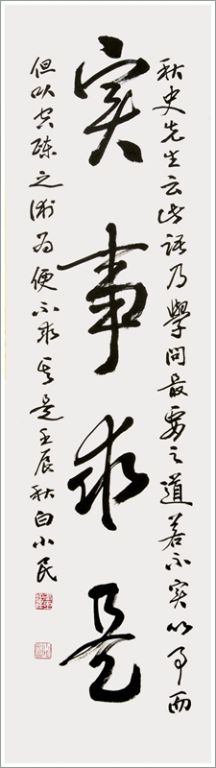 实事求是
秋史先生云此語乃學問最要之道若不实以事而
但以空疎之術为便不求其是壬辰秋白小民